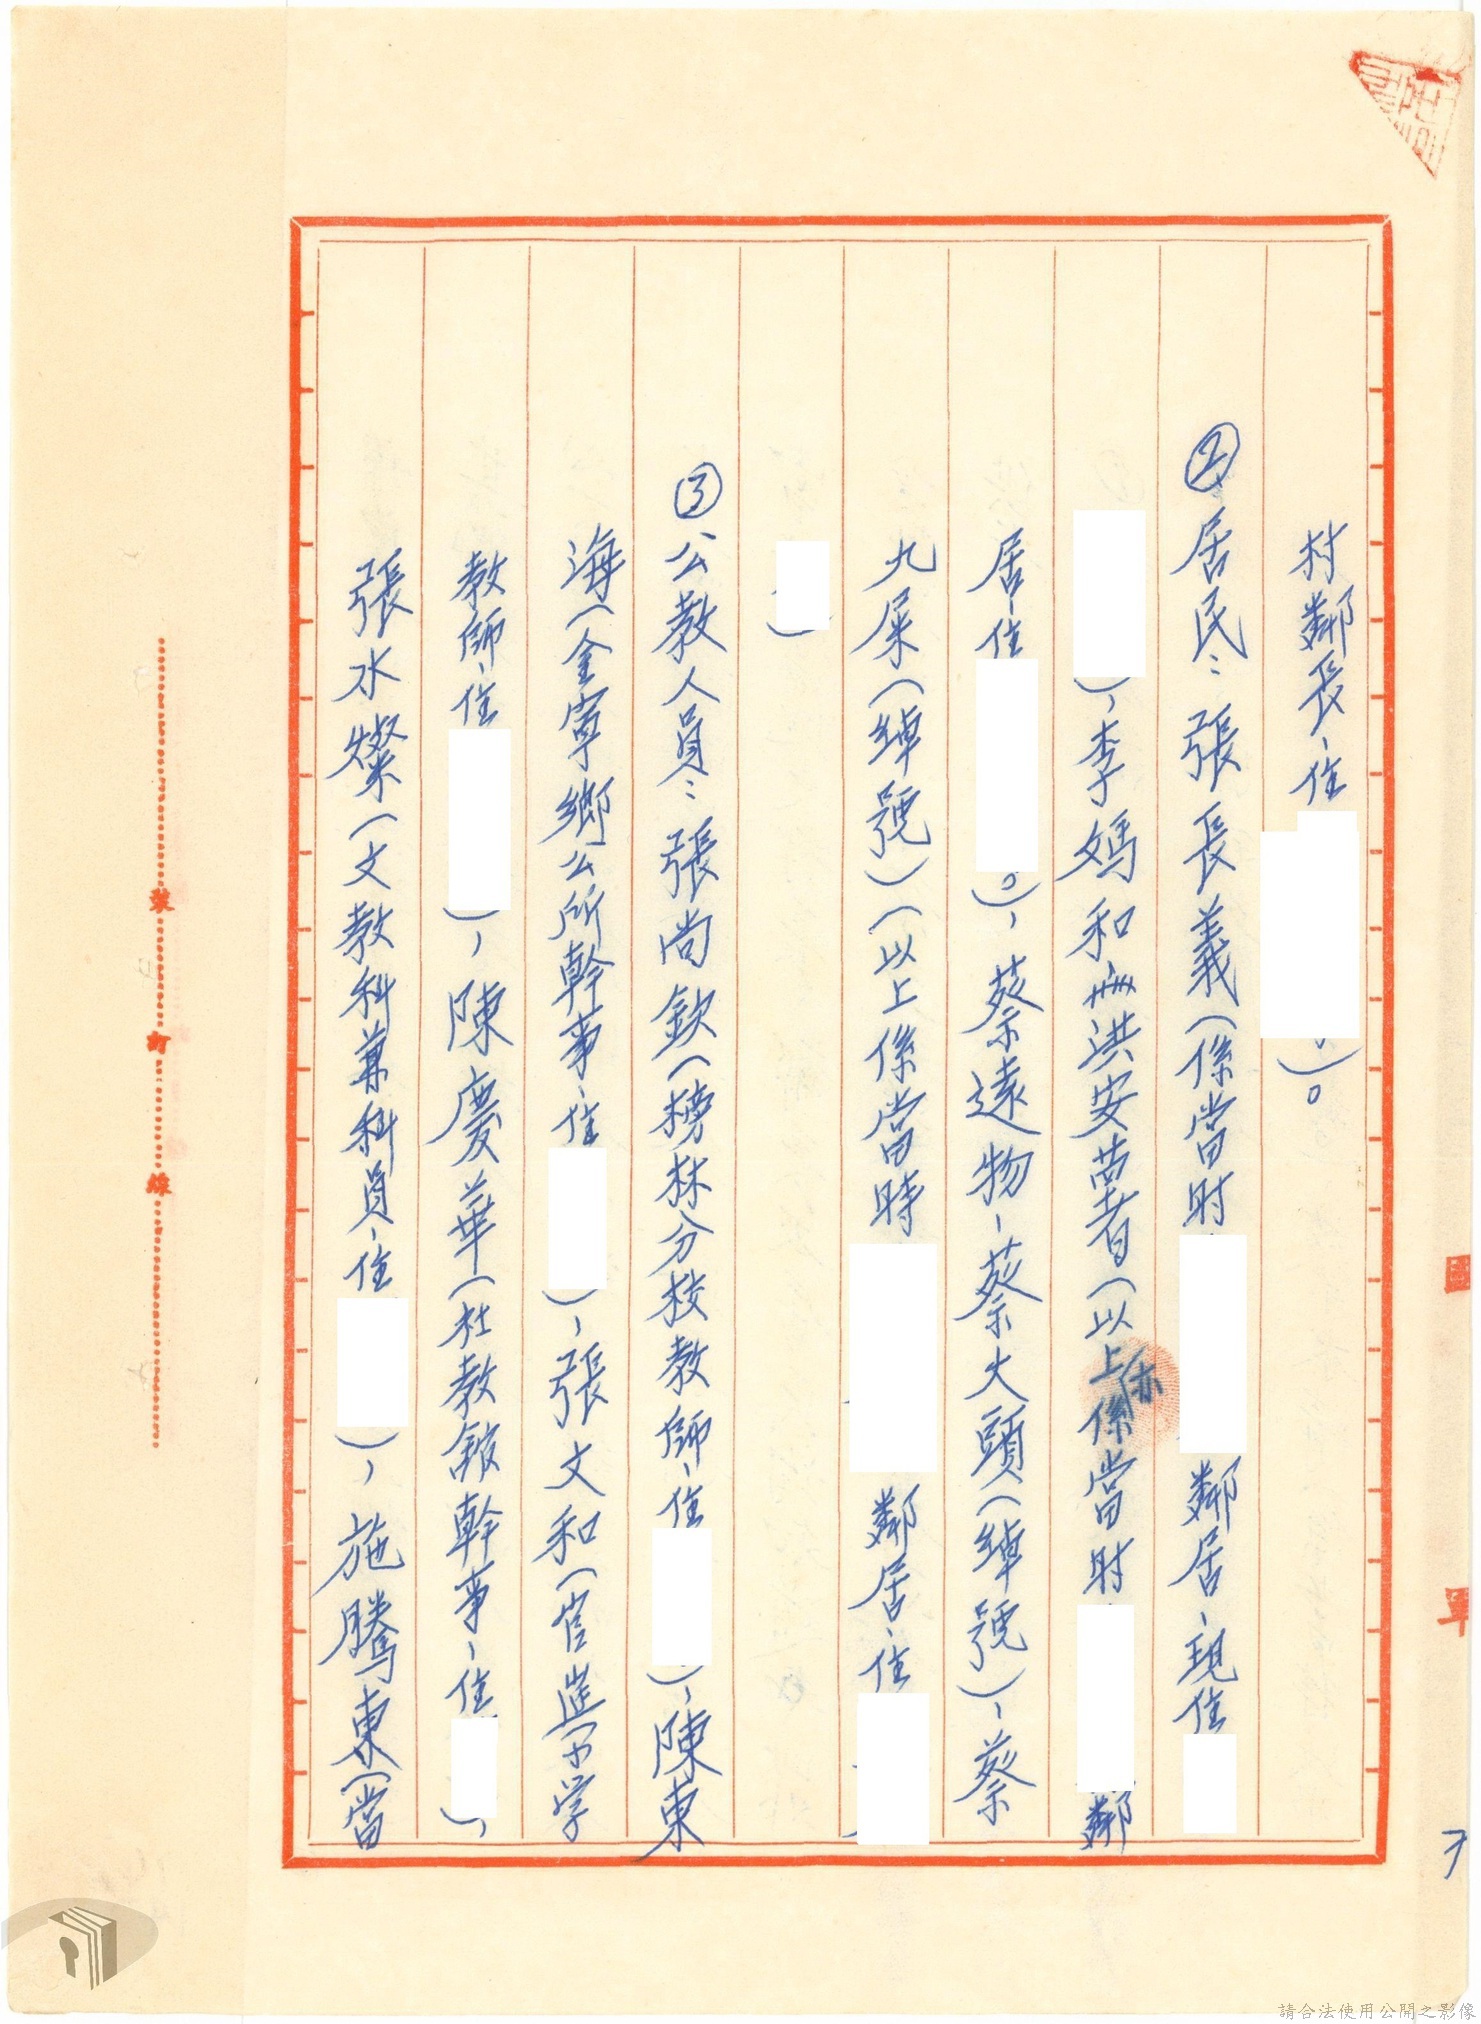 村鄰長、住
)。
②居民:張長義(係當时
鄰居、現住
)，李媽和、洪安薯(以上係當时
鄰
居、住
。)，蔡遠物、蔡火頭(綽號)、蔡
九屎(綽號)(以上係當時
鄰居、住
)
③公教人員:張尚欽(榜林分校教師、住
)，陳東
海(金寧鄉公所幹事、住
)，張文和(官學
教師、住
)，陳慶華(社教館幹事、住
)，
張水燦(文教科兼科員、住
)，施騰東(當
裝訂線
請合法使用公開之影像